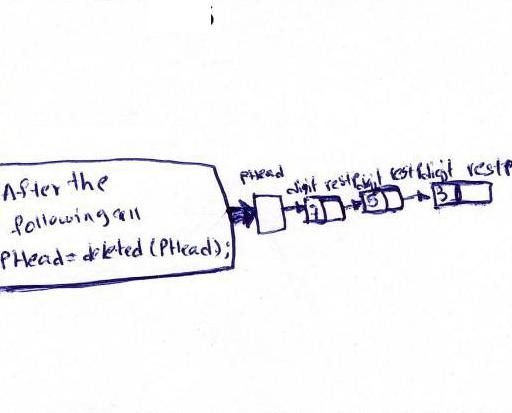 After the
following call
PHead = deleted (PHead);
PHead
digit restP digit restP digit restP
7 5 3